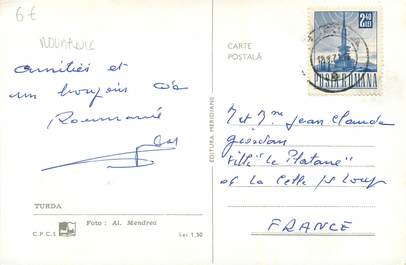 6€
ROUMANIE
amitiés et
un bonjour de
Roumanie
TURDA
Foto : Al. Mendrea
C.P.C.S.
Lei 1,50
EDITURA MERIDIANE
CARTE
POȘTALĂ
2,40
LEI
POSTA ROMANA
M et Mme Jean Claude
Villa "Le Platane"
La Celle s/ Loup
FRANCE